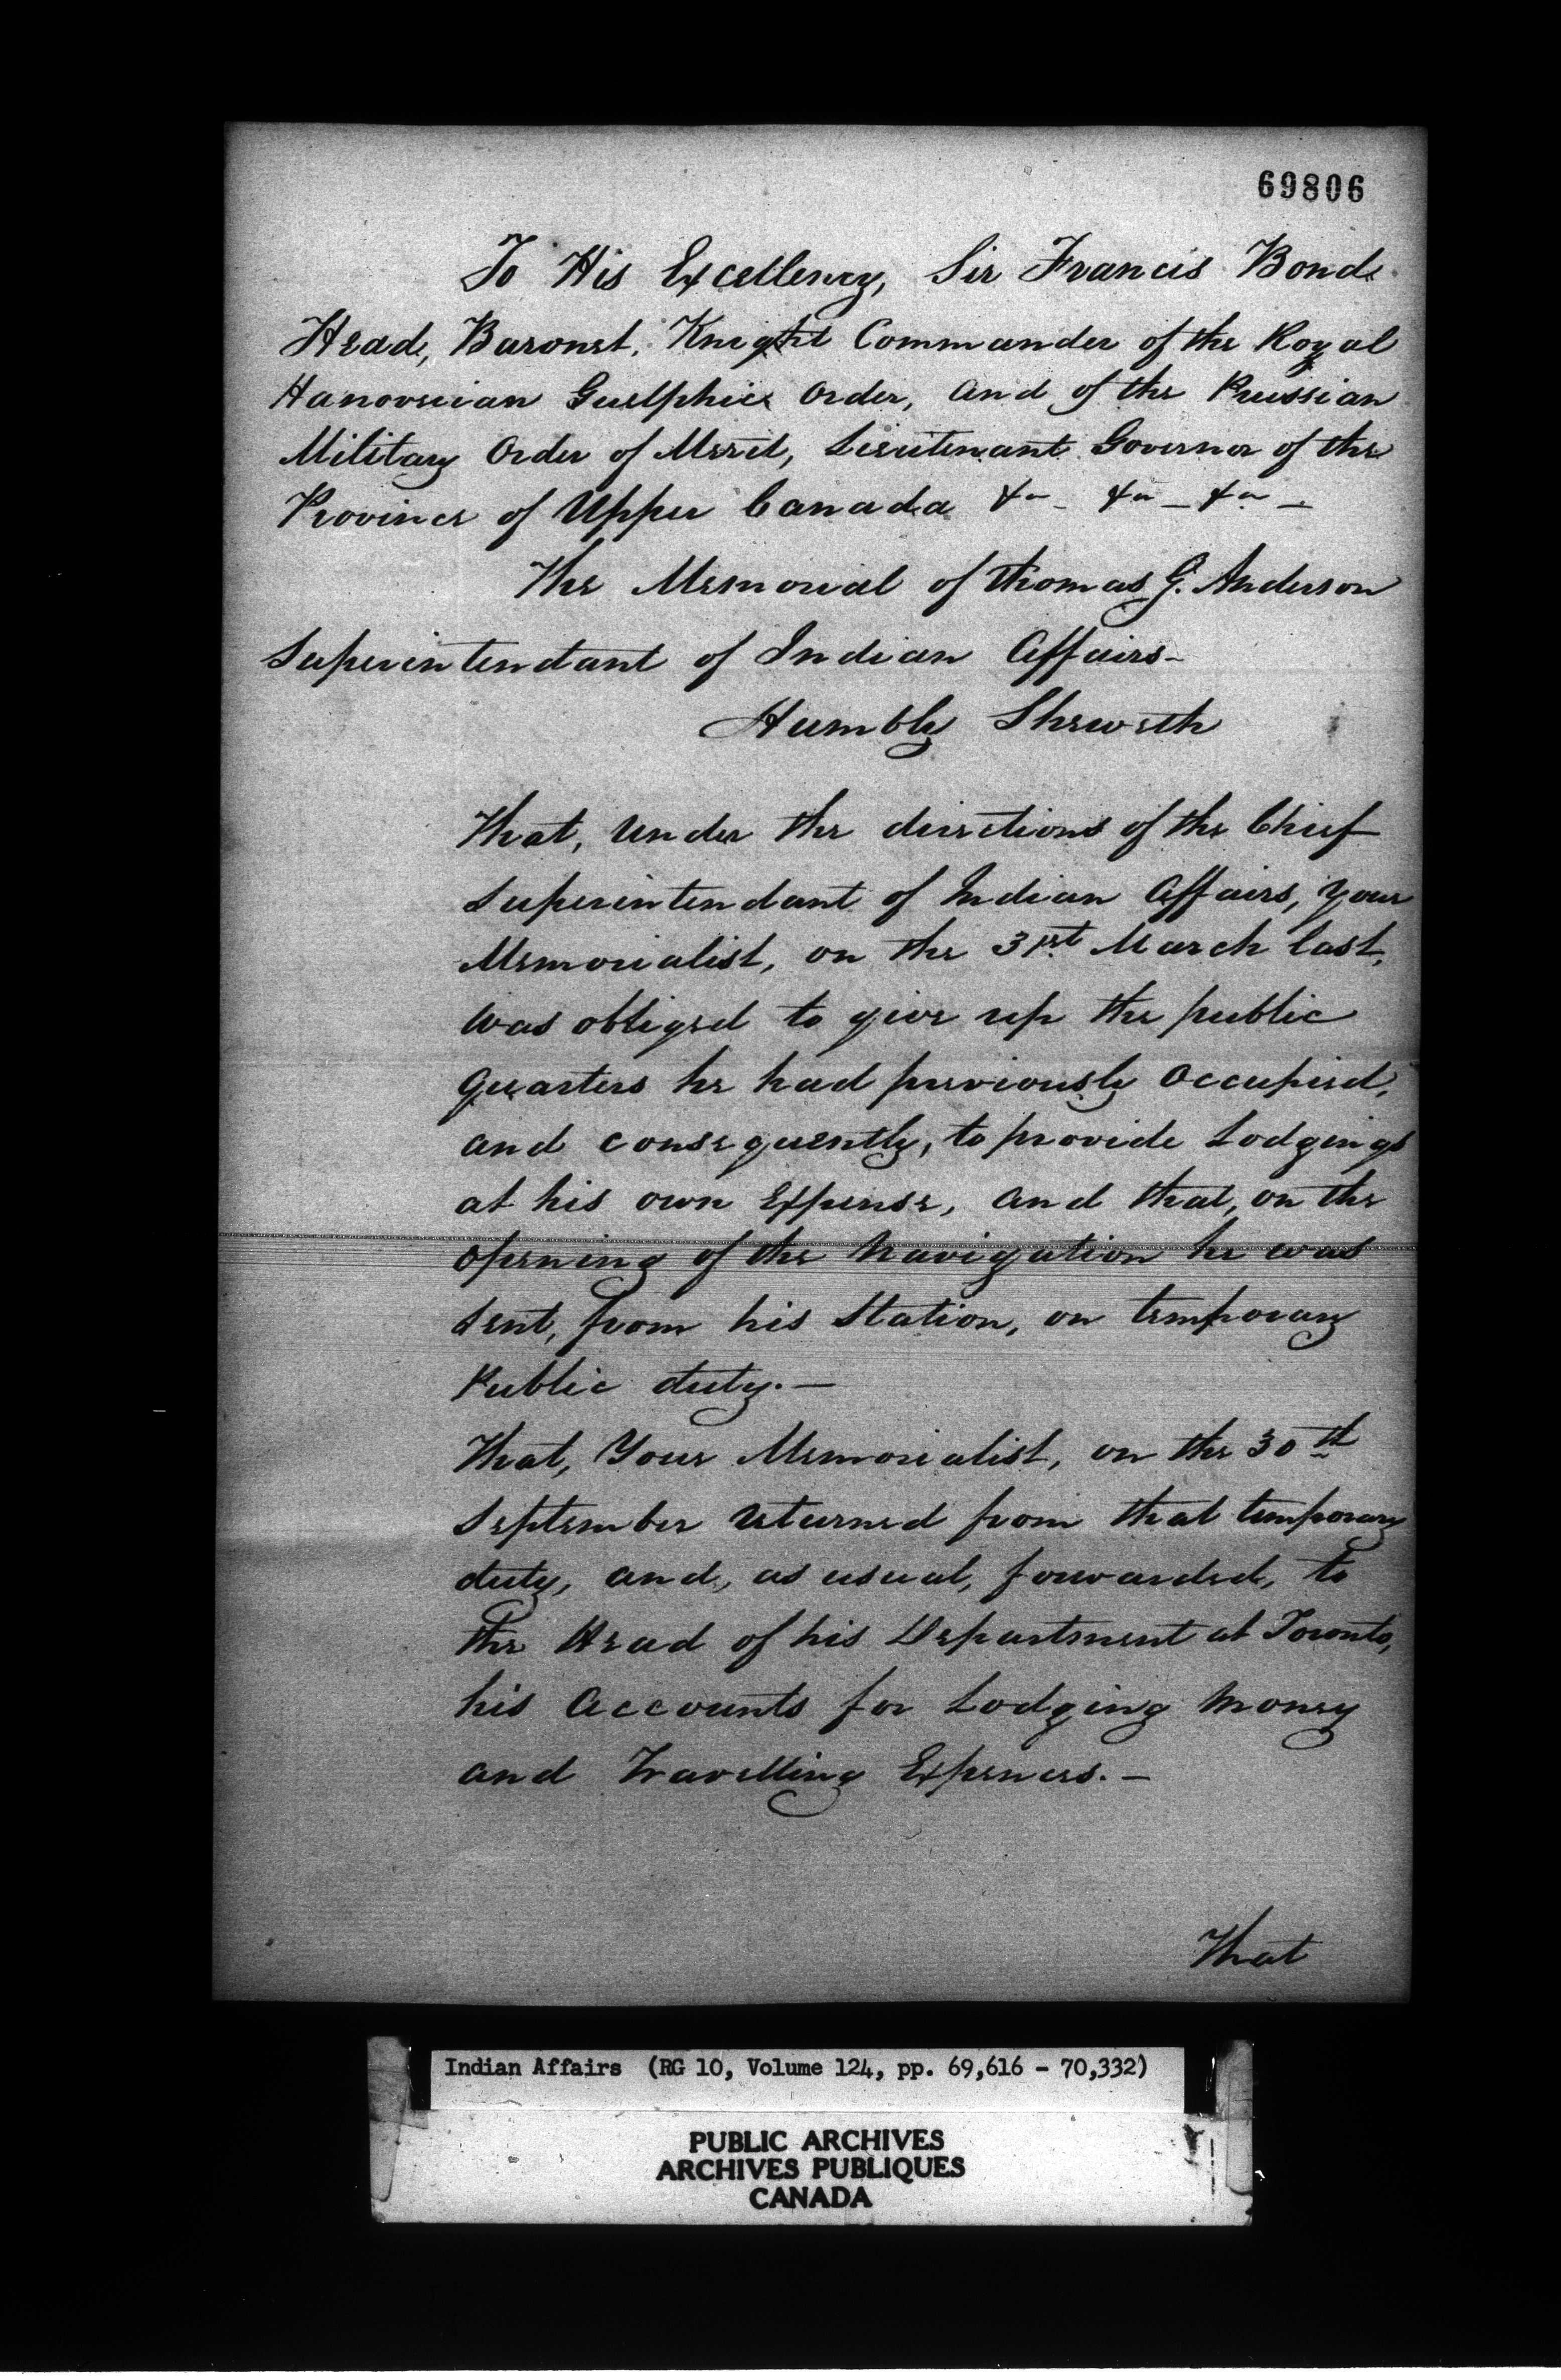 69806
To His Excellency, Sir Francis Bond
Head, Baronet. Knight Commander of the Royal
Hanoverian Guelphic Order, and of the Prussian
Military Order of Merit, Lieutenant Governor of the
Province of Upper Canada &a - &a - &a -
The Memorial of Thomas G. Anderson
Superintendant of Indian Affairs -
Humbly Sheweth
That, under the directions of the Chief
Superintendant of Indian Affairs, Your
Memorialist, on the 31st March last,
was obliged to give up the public
Quarters he had previously occupied,
and consequently, to provide Lodgings
at his own Expense, and that, on the
opening of the Navigation he was
sent, from his Station, on temporary
Public duty. —
That, Your Memorialist, on the 30th
September returned from that temporary
duty, and, as usual, forwarded, to
the Head of his Department at Toronto,
his Accounts for Lodging Money
and Travelling Expences. —
That
Indian Affairs (RG 10, Volume 124, pp. 69,616 - 70,332)
PUBLIC ARCHIVES
ARCHIVES PUBLIQUES
CANADA